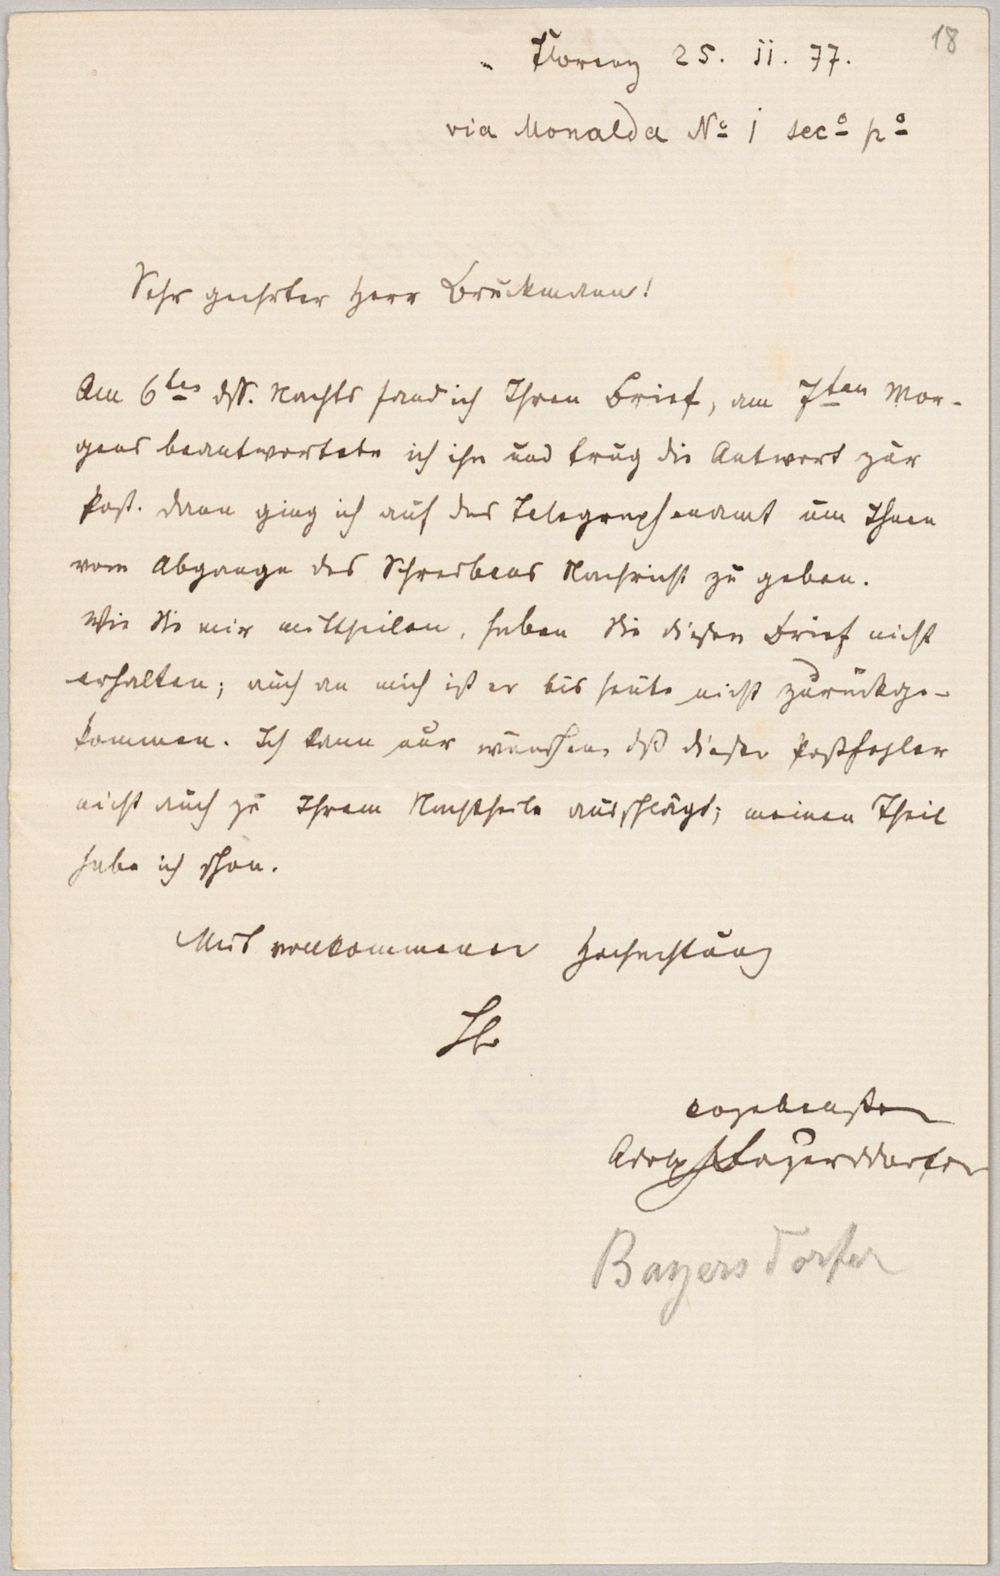 18
Florenz 25. II. 77.
via Monalda Nº 1 secº pº
Sehr geehrter Herr Bruckmann!
Am 6ten dss. Nachts fand ich Ihren Brief, am 7ten Mor-
gens beantwortete ich ihn und trug die Antwort zur
Post. Dann ging ich auf das Telegraphenamt um Ihnen
vom Abgange des Schreibens Nachricht zu geben.
Wie Sie mir mittheilen, haben Sie diesen Brief nicht
erhalten; auch an mich ist er bis heute nicht zurückge-
kommen. Ich kann nur wünschen dß dieser Postfehler
nicht auch zu Ihrem Nachtheile ausschlägt; meinen Theil
habe ich schon.
Mit vollkommener Hochachtung
Ihr
ergebenster
Adolph Bayersdorfer
Bayersdorfer